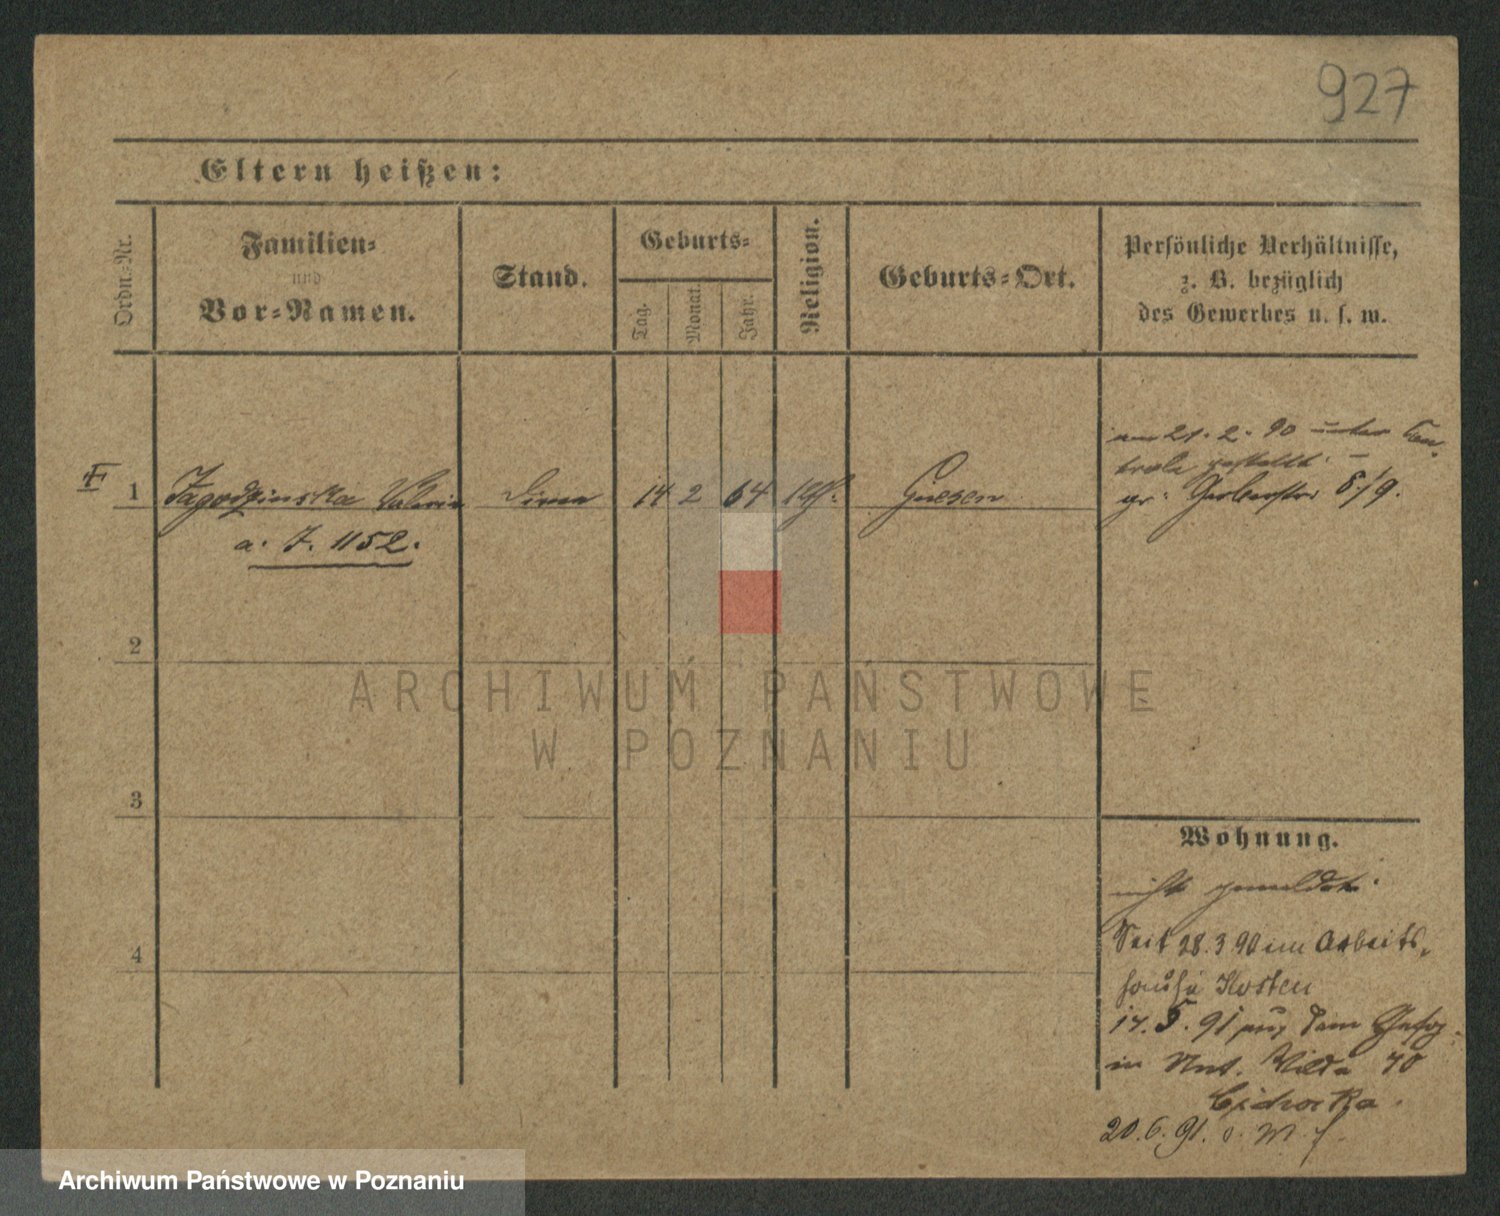 927
Eltern heißen:
Ordn.-Nr.
Familien-
und
Vor-Namen.
Stand.
Geburts-
Tag.
Monat.
Jahr.
Religion.
Geburts-Ort.
Persönliche Verhältnisse,
z. B. bezüglich
des Gewerbes u. s. w.
am 21. 2. 90 unter Con-
trole gestellt. –
gr. Gerberstr. 8/9.
1 Jagodzinska Valeria Dirne 14 2 64 kth. Gnesen
a. J. 1152.
2
3
4
Wohnung.
nicht gemeldet.
Seit 28.3 90 im Arbeits-
hause Kosten
17. 5. 91 aus dem
in Unt. Wilda 40
Cichocka.
20. 6. 91.
ARCHIWUM PAŃSTWOWE
W POZNANIU
Archiwum Państwowe w Poznaniu